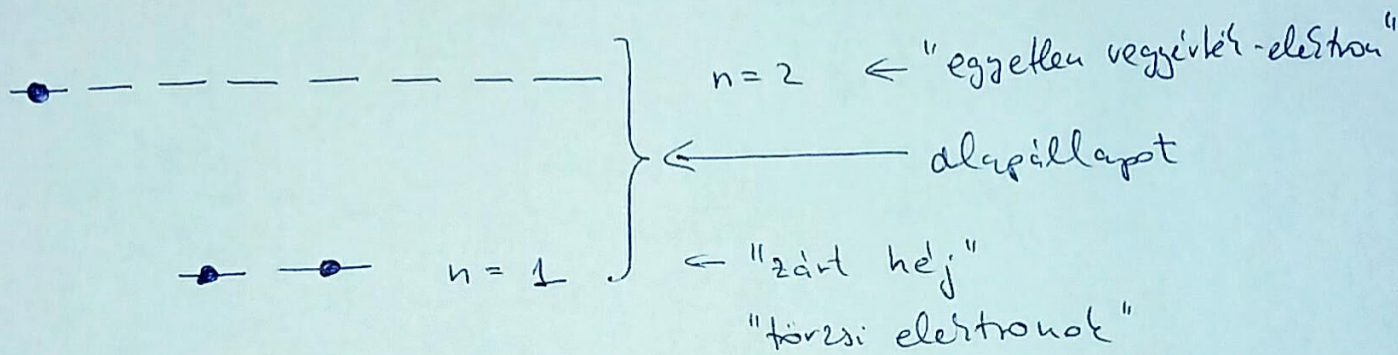 n = 2 ← "egyetlen vegyérték-elektron"
← alapállapot
n = 1 ← "zárt héj"
"törzsi elektronok"